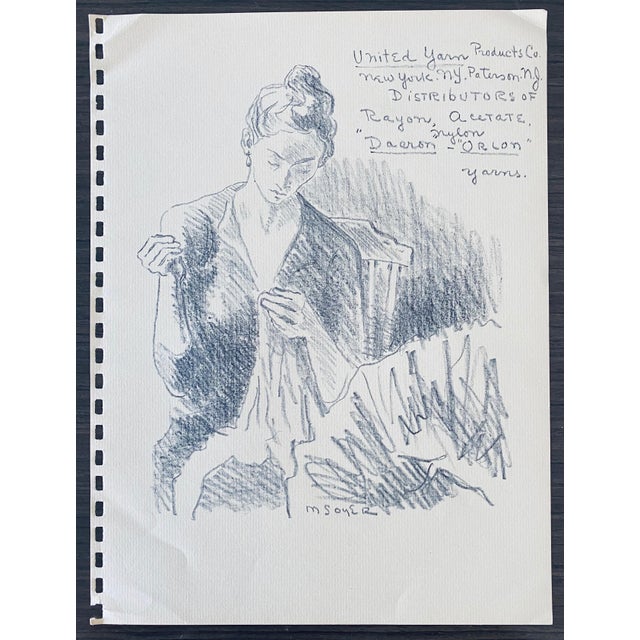 United Yarn Products Co.
New York. N.Y. Paterson. N.J.
Distributors of
Rayon, Acetate,
nylon
"Dacron - "Orlon"
yarns.
M SOYER